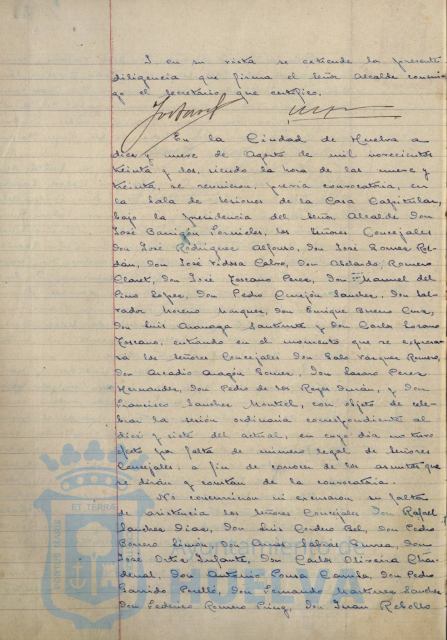 I en su vista se extiende la presente
diligencia que firma el Señor Alcalde conmi
go el Secretario que certifico.
En la Ciudad de Huelva a
diez y nueve de Agosto de mil novecientos
treinta y dos, siendo la hora de las nueve y
treinta, se reunieron, previa convocatoria, en
la Sala de Sesiones de la Casa Capitular,
bajo la presidencia del Señor Alcalde Don
José Barrigón Fornieles, los Señores Concejales
don José Rodriguez Alfonso, don José Romero Rol-
dán, don José Vidosa Calvo, don Abelardo Romero
Claret, don José Toscano Perez, Don Manuel del
Pino Lopez, Don Pedro Cerejón Sanchez, don Sal-
vador Moreno Marquez, don Enrique Bueno Cruz,
don Luis y don Carlos Lozano
Toscano, entrando en el momento que se expresa-
rá los Señores Concejales Don Pablo Vazquez Romero,
don Arcadio Aragón Gomez, Don Perez
Hernandez, Don Pedro de los Reyes Durán, y Don
Francisco Sanchez Montiel, con objeto de cele-
brar la sesión ordinaria correspondiente al
diez y siete del actual, en cuyo dia no tuvo
efecto por falta de número legal de Señores
Concejales, a fin de conocer de los asuntos que
se dirán y constan de la convocatoria.
No concurrieron ni excusaron su falta
de asistencia los Señores Concejales Don Rafael
Sanchez Diaz, Don Luis Cordero Bel, Don Pedro
Borrero Limón, Don Amós Sabrás Gurrea, Don
José Ortiz Infante, Don Carlos Oliveira Cha-
denal, Don Antonio Ponsa, Don Pedro
Garrido Perelló, Don Fernando Martinez Sanchez
Don Federico Romero, Don Juan Rebollo
ET TERRÆ
Ayuntamiento de
HUELVA